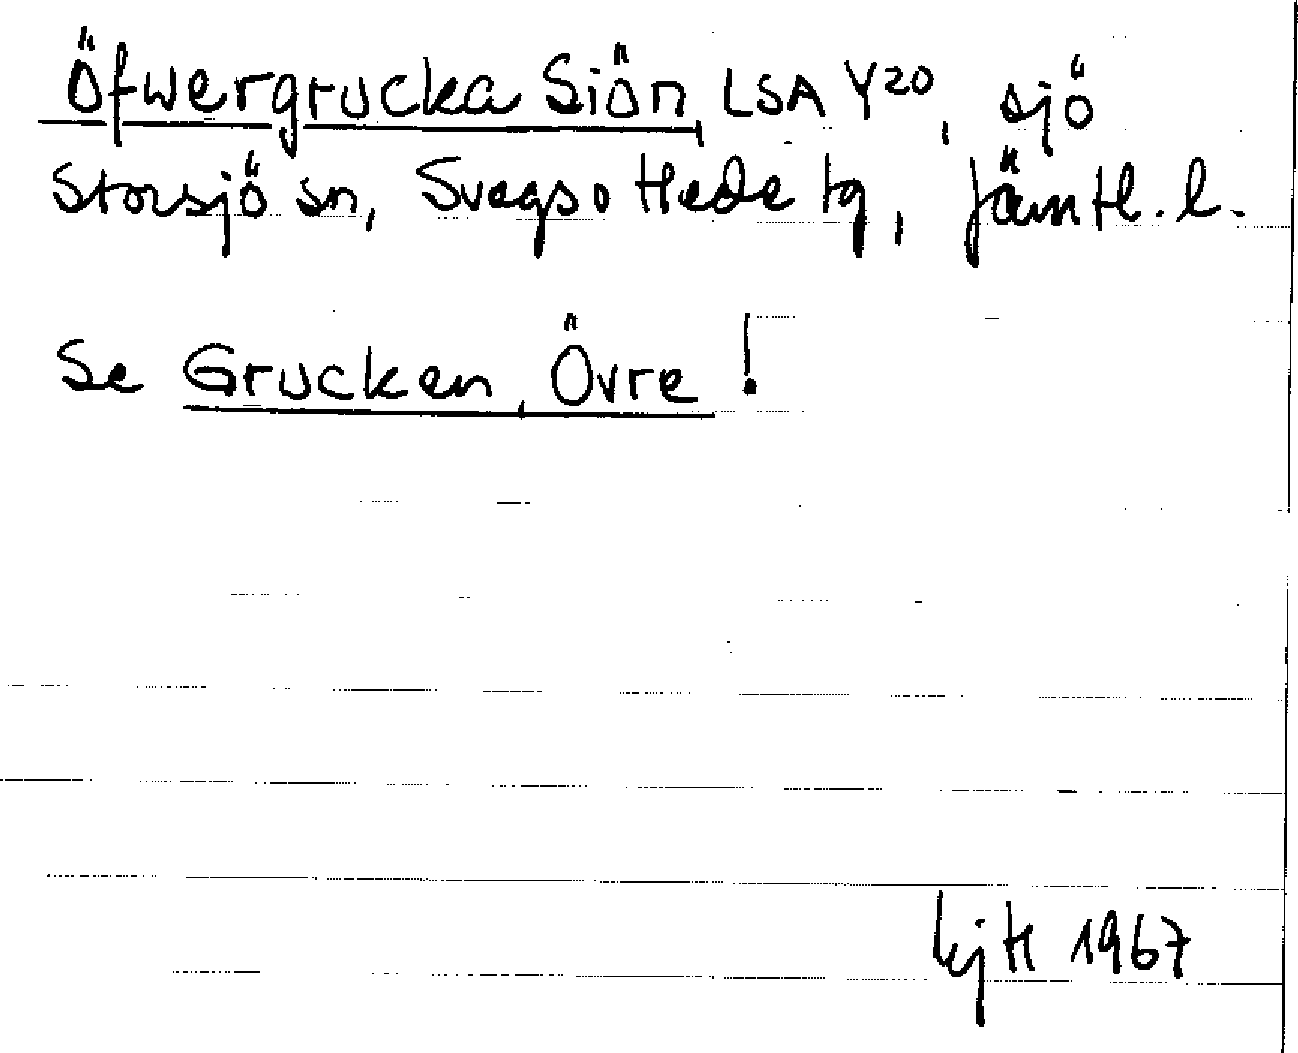 Öfwergrucka Siön, LSA Y20, sjö
Storsjö sn, Svegs o Hede tg, Jämtl. l.
Se Grucken, Övre!
1967